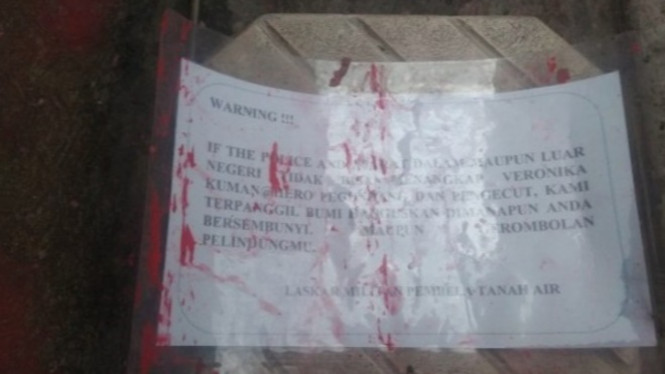 WARNING !!!
IF THE POLICE AND DALAM MAUPUN LUAR
NEGERI TIDAK MENANGKAP VERONIKA
KUMAN DAN PENGECUT, KAMI
TERPANGGIL BUMI HANGUSKAN DIMANAPUN ANDA
BERSEMBUNYI. MAUPUN GEROMBOLAN
PELINDUNGMU.
LASKAR MILITAN PEMBELA TANAH AIR